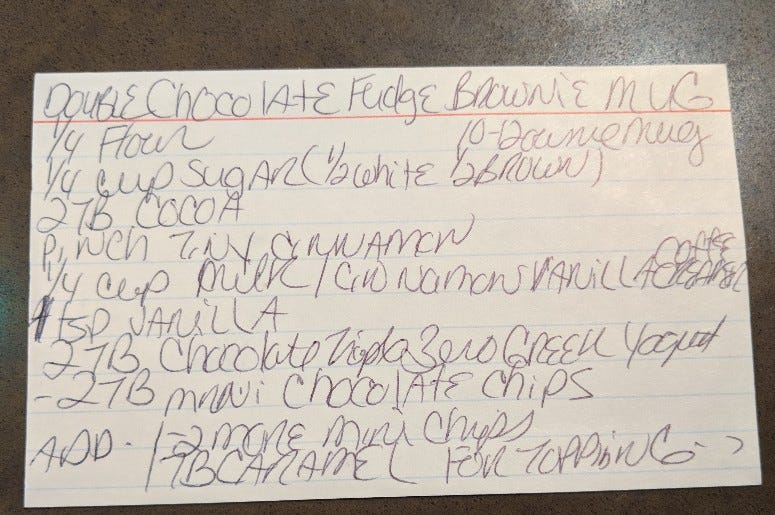 DOUBLE ChOCOLATE FudgE BROWNiE MUG
1/4 Flour 10-Ounce Mug
1/4 cup SugAR (1/2 white 1/2 BROWN)
2 TB COCOA
PiNCH TiNY CiNNAMON
1/4 cup Milk / CiNNamon VANillA COFFEE CREAMER
1 TSP VANillA
2 TB Chocolate Triple Zero GREEK Yogurt
- 2 TB MiNi ChOCOlATE ChipS
ADD - 1-2 MORE Mini Chips
1 TB CARAMEL FOR TOPPiNG ->